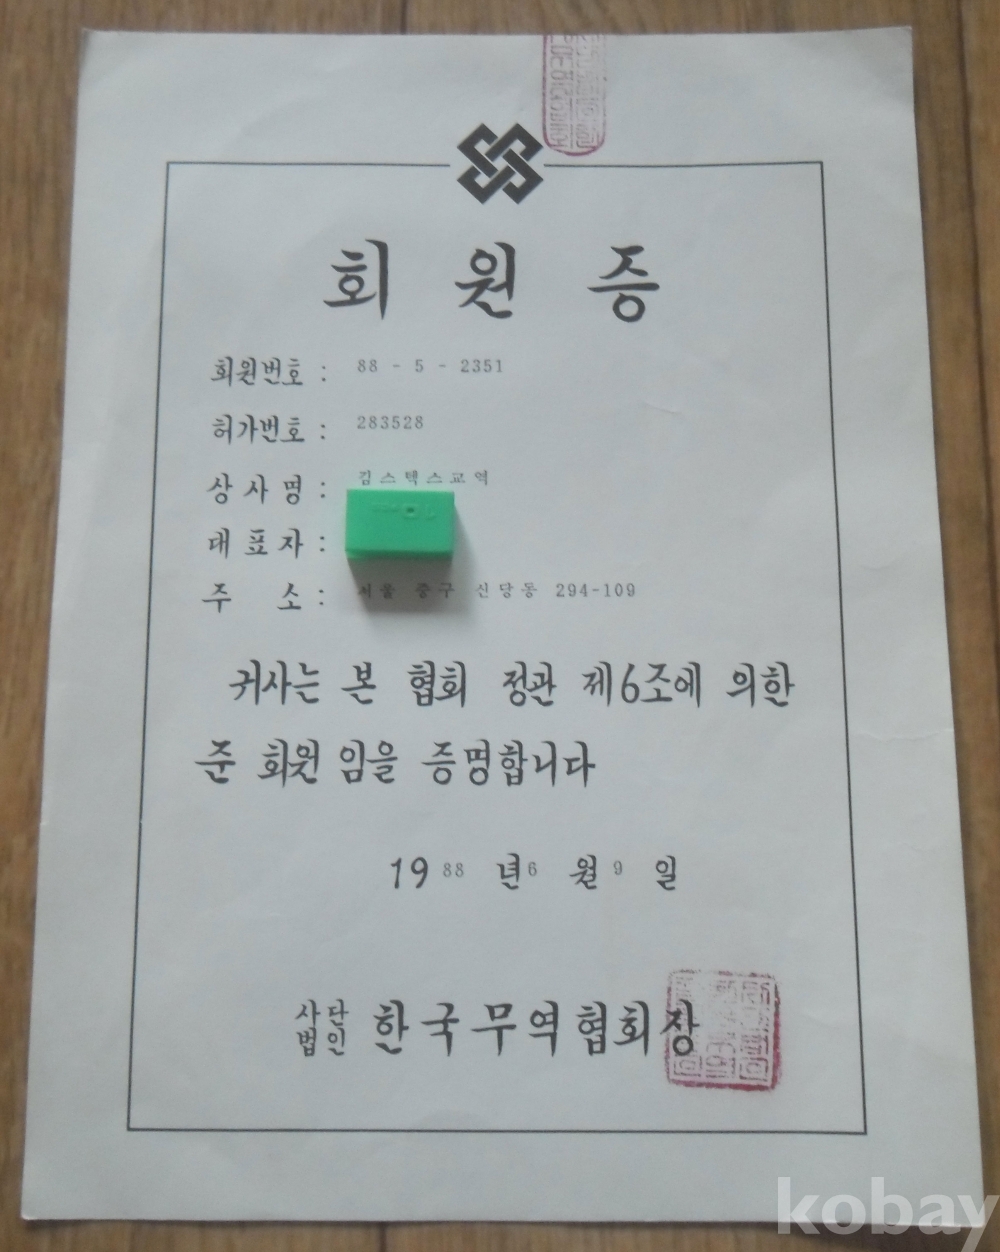 회 원 증
회원번호 : 88 - 5 - 2351
허가번호 : 283528
상 사 명 : 김스텍스교역
대 표 자 :
주 소 : 서울 중구 신당동 294-109
귀사는 본 협회 정관 제6조에 의한
준 회원 임을 증명합니다
1988 년 6 월 9 일
사단법인 한국무역협회장
kobay